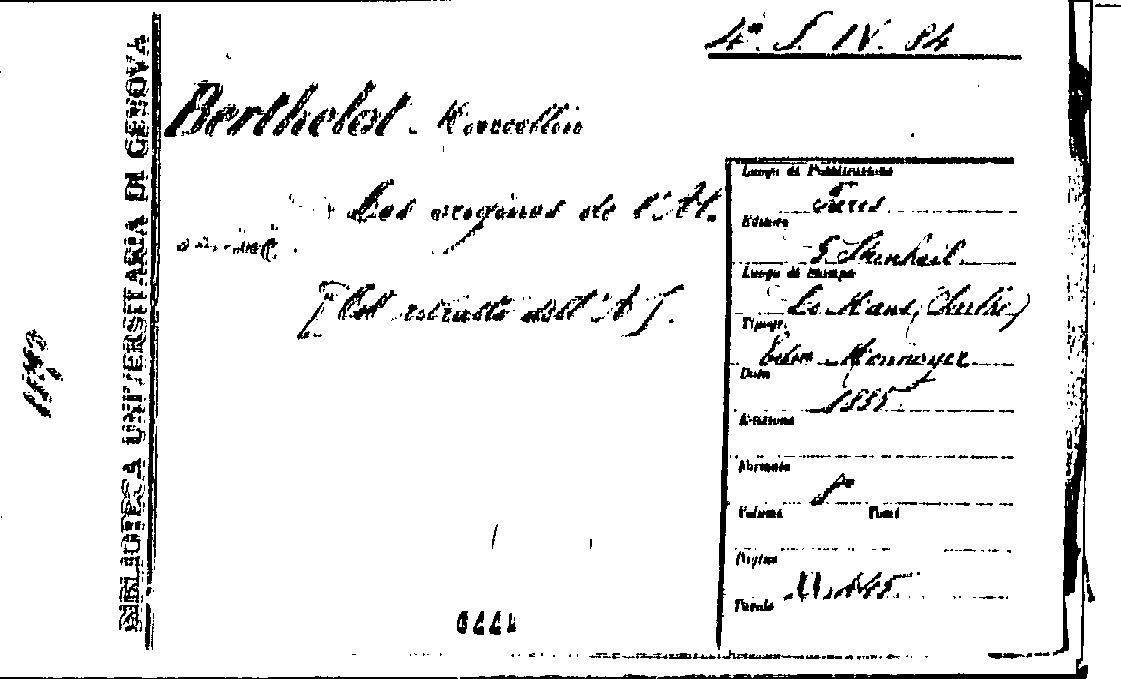 4ª S. IV. 84
BIBLIOTECA UNIVERSITARIA DI GENOVA
Berthelot Marcellin
Les origines de l'Al.
[Col ritratto dell'A].
Luogo di Pubblicazione
Paris
Editore
G Steinheil
Luogo di Stampa
Le Mans (Sarthe)
Tipogr.
Edm Monnoyer
Data
1885
Edizione
Formato
8º
Volume Tomi
Pagine
Tavole